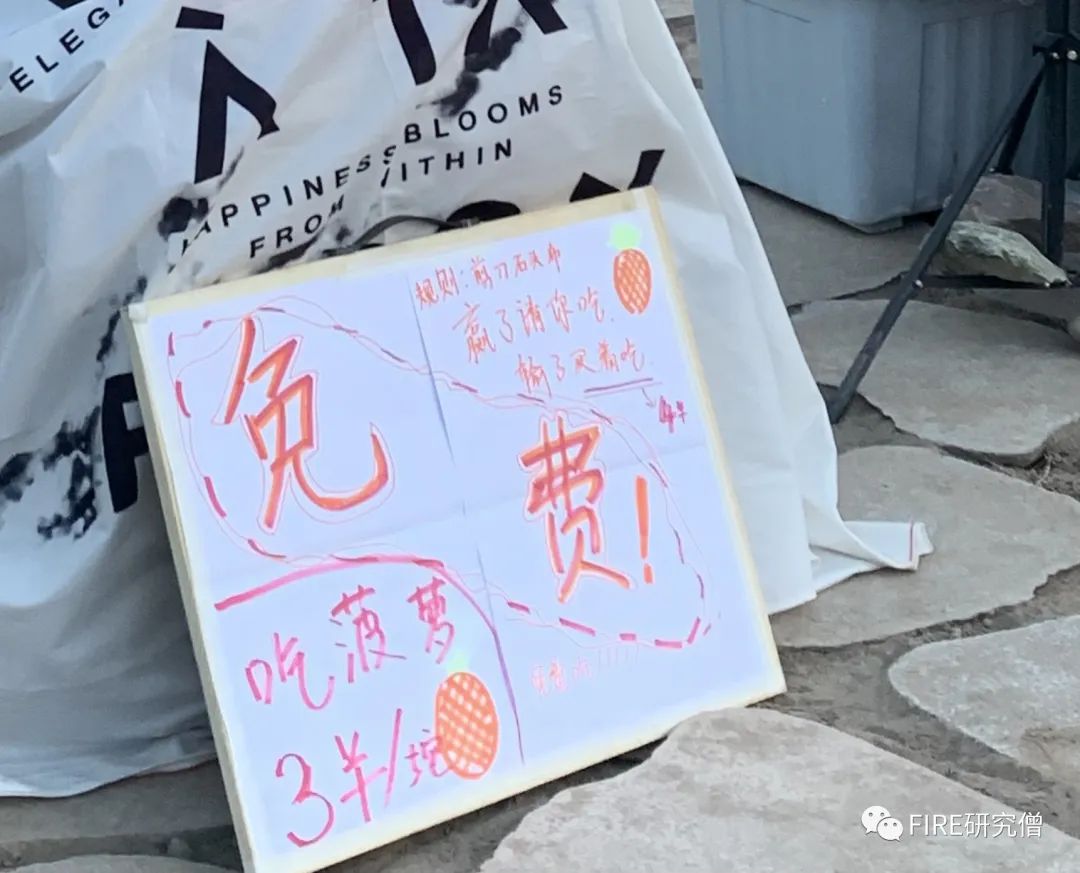 ELEGA
HAPPINESS BLOOMS
FROM WITHIN
规则:剪刀石头布
赢了请你吃
输了买着吃
免费!
吃菠萝
3羊/块
FIRE研究僧